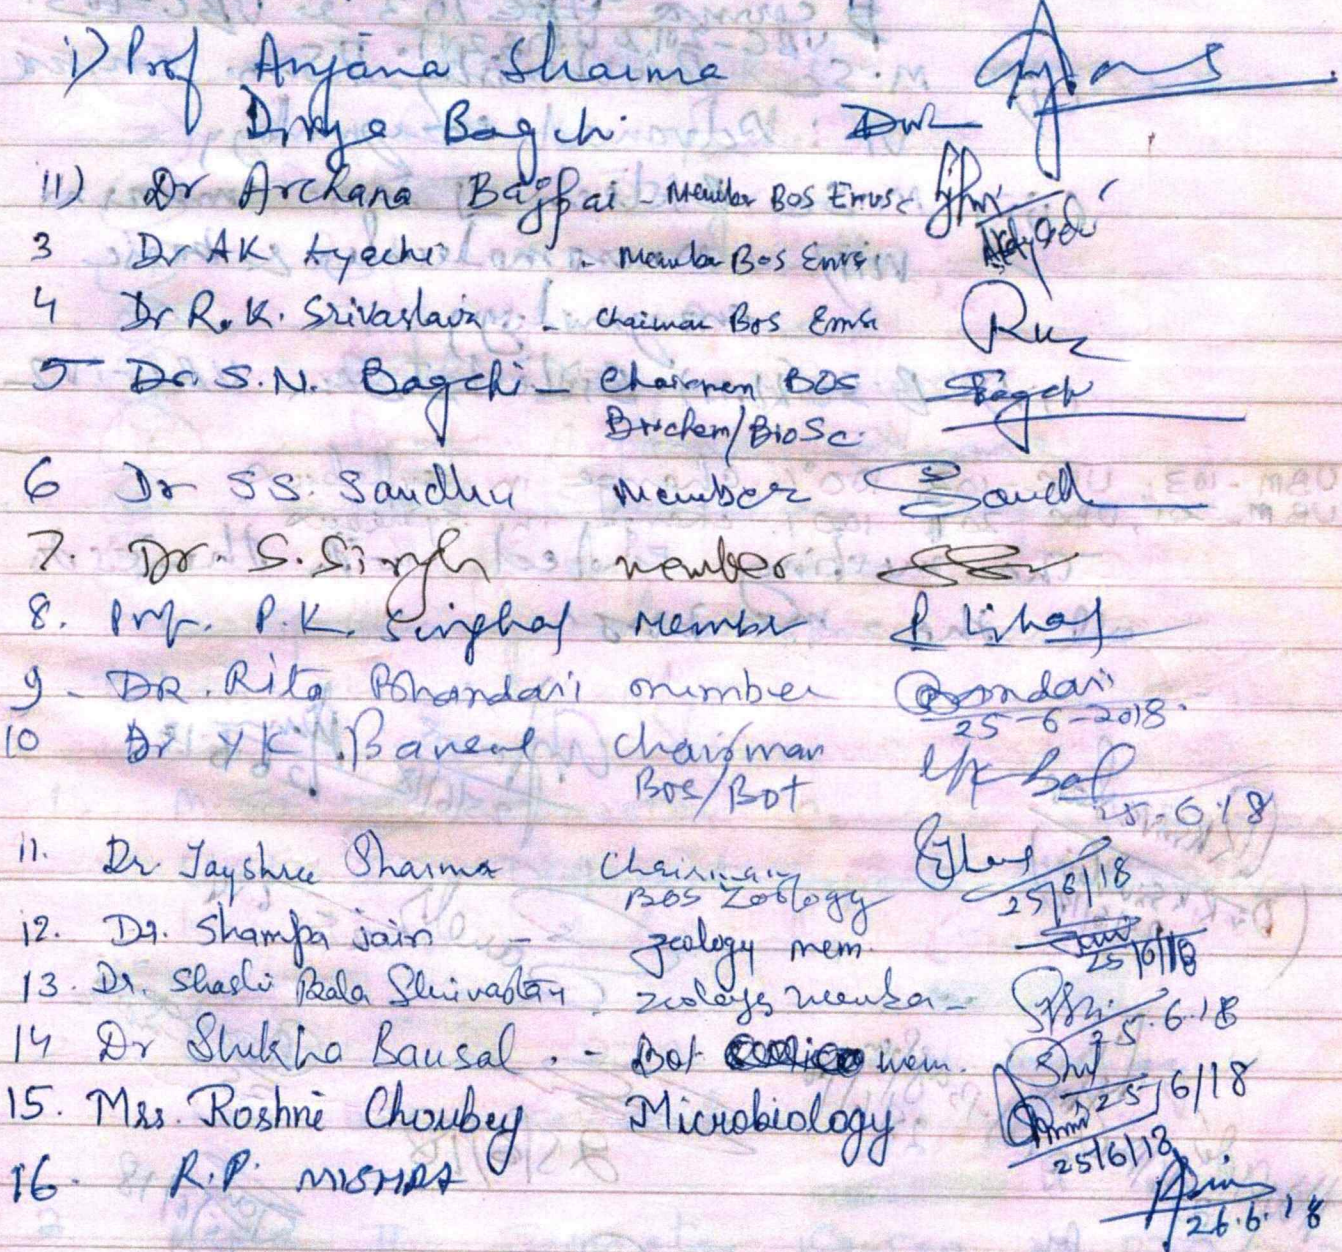 i) Prof Anjana Sharma
Divya Bagchi
11) Dr Archana Bajpai - Member BOS Envsc
3 Dr AK Ayachi - Member Bos Envs
4 Dr R.K. Srivastava - Chairman Bos Envs
5 Dr. S.N. Bagchi - Chairman BOS Bagch
Biochem/BioSc.
6 Dr SS. Sandhu member Sandh
7. Dr. S. Singh member
8. Prof. P.K. Singhal Member
9 - DR. Rita Bhandari member
25-6-2018.
10 Dr YK Bansal Chairman
Bos/Bot 25.6.18
11. Dr Jayshree Sharma Chairman
BOS Zoology 25/6/18
12. Dr. Shampa jain - zoology mem. 25/6/18
13. Dr. Shashi Bala Shrivastav zoology member - 25.6.18
14 Dr Shikha Bansal . - Bot mem. 25/6/18
15. Mrs. Roshni Choubey Microbiology 25/6/18
16. R.P. MISHRA
26.6.18